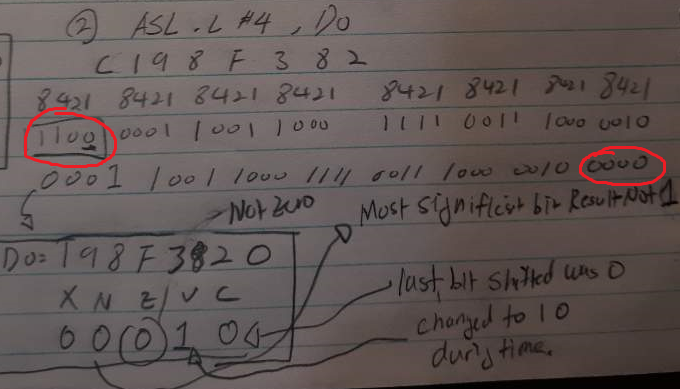 ② ASL.L #4, D0
C 1 9 8 F 3 8 2
8421 8421 8421 8421 8421 8421 8421 8421
1100 0001 1001 1000 1111 0011 1000 0010
0001 1001 1000 1111 0011 1000 0010 0000
Not Zero
Most significist bit Result Not 1
D0= 198F3820
X N Z V C
0 0 0 1 0
last bit shifted was 0
changed to 10
durig time.